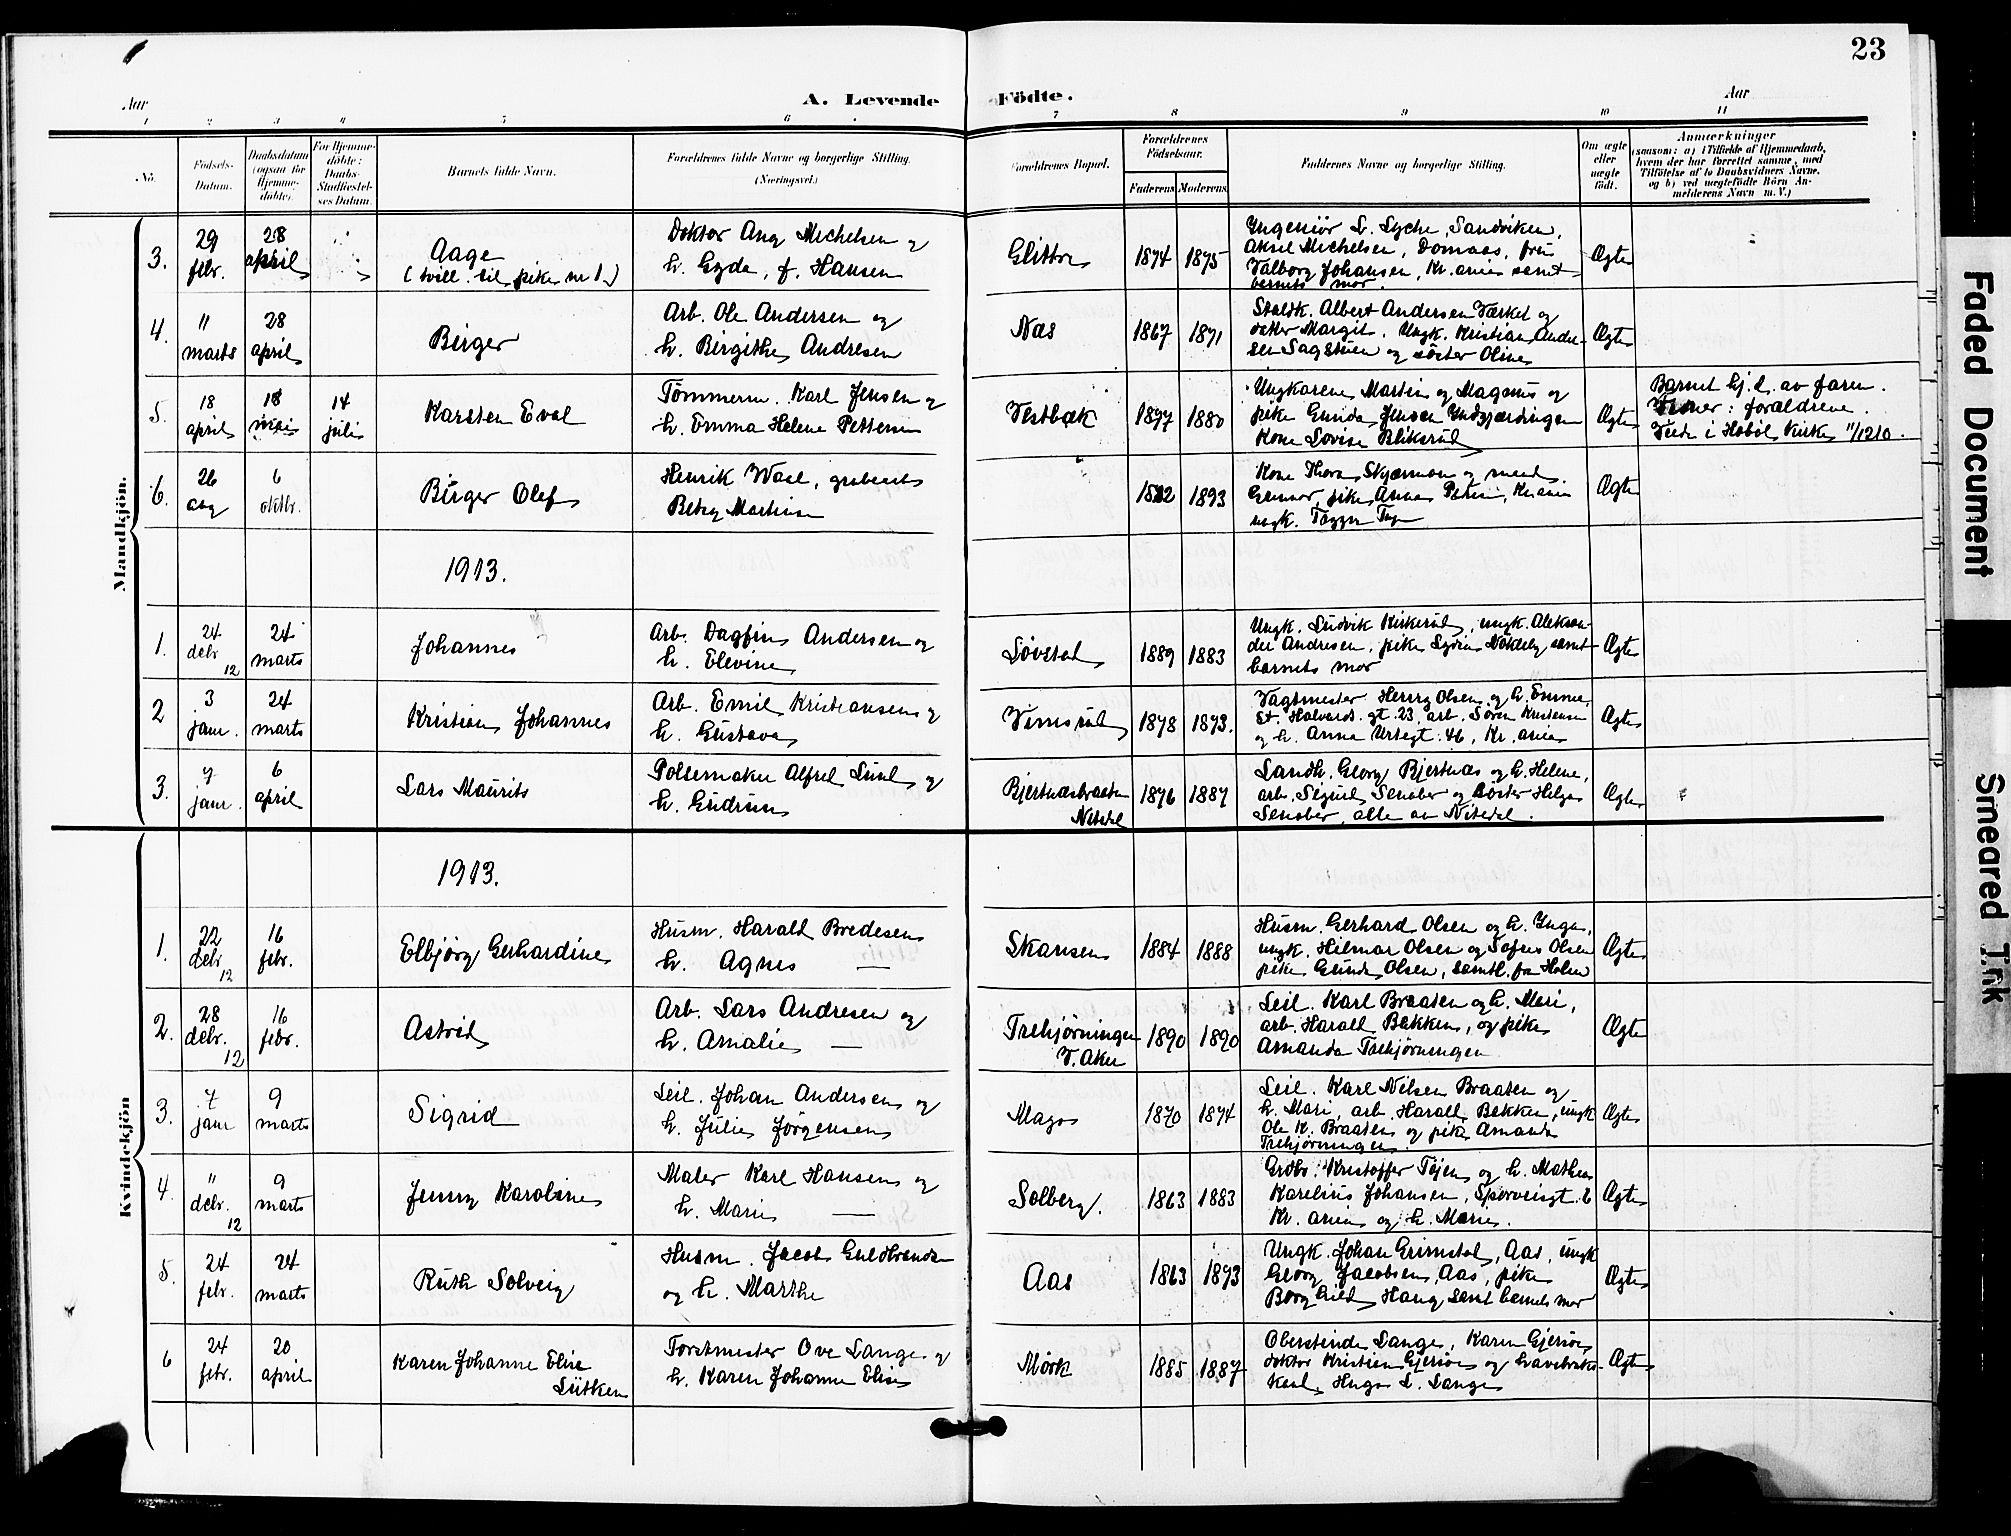 23
Aar
A. Levende
Födte.
Aar
1 2 3 4 5 6 7 8 9 10 11
No.
Födsels-
Datum.
Daabsdatum
(ogsaa for
Hjemme-
døbte).
For Hjemme-
døbte:
Daabs-
Stadfæstel-
ses Datum.
Barnets fulde Navn.
Forældrenes fulde Navne og borgerlige Stilling.
(Næringsvei.)
Forældrenes Bopæl.
Forældrenes
Födselsaar.
Faderens
Moderens
Faddernes Navne og borgerlige Stilling.
Om ægte
eller
uægte
født.
Anmærkninger
(saasom: a) i Tilfælde af Hjemmedaab,
hvem der har forrettet samme, med
Tilföielse af to Daabsvidners Navne,
og b) ved uægtefödte Börn An-
melderens Navn m. V.)
Mandkjön.
3.
29
febr.
28
april
Aage
(tvill. til pike nr 1.)
Doktor Aug Michelsen og
h. Gyda, f. Hansen
Glittre
1874
1875
Ingeniör L. Lyche, Sandviken,
Aksel Michelsen, Domaas, fru
Valborg Johansen, Kr.ania samt
barnets mor.
Ægte
4.
11
marts
28
april
Birger
Arb. Ole Andersen og
h. Birgithe Andresen
Nas
1867
1871
Staldk. Albert Andersen Værket og
datter Margit, Ungk. Kristian Andre-
sen Sagstuen og söster Oline
Ægte
5.
18
april
18
mai
14
juli
Karsten Eval
Tömmerm. Karl Jensen og
h. Emma Helene Pettersen
Vestbæk
1877
1880
Ungkarene Martin og Magnus og
pike Gunda Jensen
Kone Lovise Bliksrud
Ægte
Barnet hj.d. av faren.
Vidner: forældrene.
i Hobøl Kirke 11/12 10.
6.
26
aug
6
oktbr.
Birger Olaf
Henrik Wael, grubearb
Betzy Martinsen
1893
Kone Thora og mand
Gunnar, pike Anna Kr.ania
ungk.
Ægte
1913.
1.
24
debr
12
24
marts
Johannes
Arb. Dagfin Andersen og
h. Elevine
Løvstad
1889
1883
Ungk. Ludvik Kirkerud, ungk. Aleksan-
der Andresen, pike Lydia Nökleby samt
barnets mor
Ægte
2
3
janr.
24
marts
Kristian Johannes
Arb. Emil Kristiansen og
h. Gustava
Vimsrud
1878
1873.
Vagtmester Henry Olsen og h. Emma,
St. Halvards. gt. 23, arb. Sören Kristensen
og h. Anna Urtegt. 46, Kr.ania
Ægte
3.
7
janr.
6
april
Lars Maurits
Pölsemaker Alfred Lund og
h. Gudrun
Bjertnæsbraaten
Nitedal
1876
1887
Landh. Georg Bjertnæs og h. Helene,
arb. Sigurd Senober og söster Helga
Senober, alle av Nitedal.
Ægte
Kvindekjön
1913.
1.
22
debr
12
16
febr.
Elbjörg Gerhardine
Husm. Harald Bredesen
h. Agnes —
Skansen
1884
1888
Husm. Gerhard Olsen og h. Inga,
ungk. Hilmar Olsen og Sofus Olsen
pike Gunda Olsen, samtl. fra Holen
Ægte
2.
28
debr.
12
16
febr.
Astrid
Arb. Lars Andresen og
h. Amalie —
Trehjörningen
V. Aker
1890
1890
Leil. Karl Braaten og h. Mari,
arb. Harald Bakken, og pike
Amanda Trehjörningen
Ægte
3.
7
janr
9
marts
Sigrid
Leil. Johan Andersen og
h. Julie Jörgensen
Mago
1870
1874
Leil. Karl Nilsen Braaten og
h. Mari, arb. Harald Bakken, ungk
Ole K. Braaten og pike Amanda
Trehjörningen.
Ægte
4.
11
debr.
12
9
marts
Jenny Karoline
Maler Karl Hansen og
h. Marie —
Solberg.
1863
1883
Grdbr. Kristoffer Töien og h. Mathea
Karelius Johansen, Sporveisgt. 6
Kr.ania og h. Marie.
Ægte
5.
24
febr.
24
marts
Ruth Solveig
Husm. Jacob Guldbrands
og h. Marthe
Aas
1863
1873
Ungk. Johan Grimstad, Aas, ungk
Georg Jacobsen, Aas, pike
Borghild Haug samt barnets mor
Ægte
6
24
febr.
20
april
Karen Johanne Elise
Lütken
Forstmester Ove Lange og
h. Karen Johanne Elise
Mörk
1885
1887
Oberstinde Lange, Karen Gjersöe
doktor Kristian Gjersöe og
Hugo L. Lange
Ægte
Faded Document
Smeared Ink